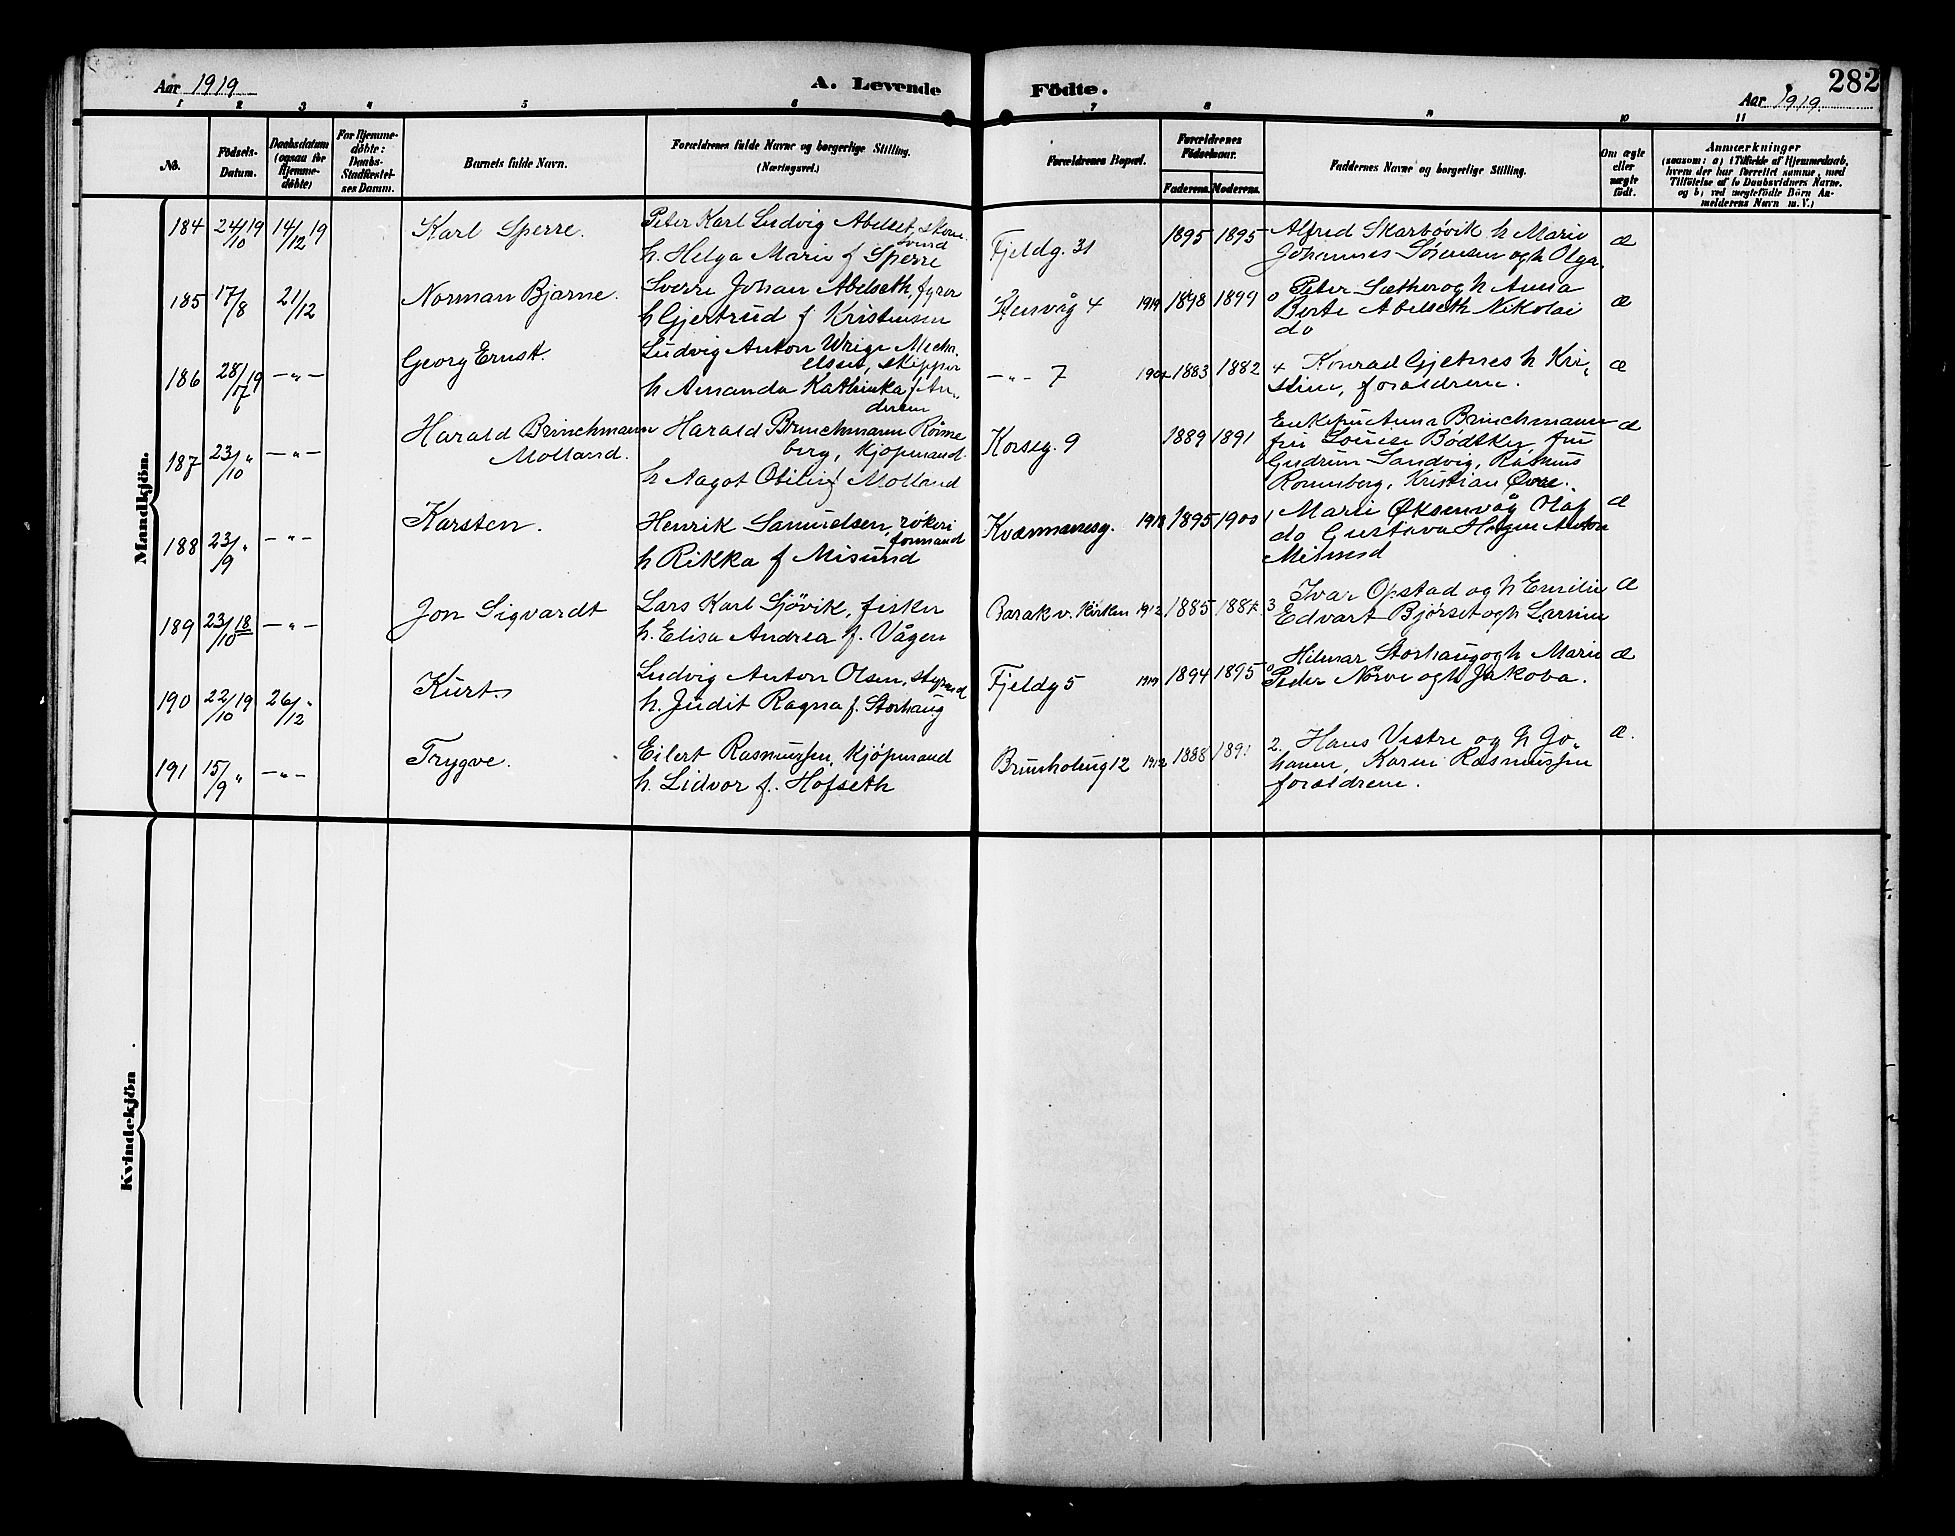 282
Aar 1919
A. Levende
Födte.
Aar 1919
1 2 3 4 5 6 7 8 9 10 11
No.
Födsels-
Datum.
Daabsdatum
(ogsaa for
Hjemme-
döbte)
For Hjemme-
döbte:
Daabs-
Stadfæstel-
ses Datum.
Barnets fulde Navn.
Forældrenes fulde Navne og borgerlige Stilling.
(Næringsvei.)
Forældrenes Bopæl.
Forældrenes
Födselsaar.
Faderens. Moderens.
Faddernes Navne og borgerlige Stilling.
Om ægte
eller
uægte
födt.
Anmærkninger
(saasom: a) i Tilfælde af Hjemmedaab,
hvem der har forrettet samme, med
Tilföielse af to Daabsvidners Navne.
og b) ved uægtefödte Börn An-
melderens Navn m. V.)
Mandkjön.
184 24/10 19 14/12 19 Karl Sperre.
Peter Karl Ludvig Abelset,
h. Helga Marie f Sperre
Fjeldg. 31 1895 1895
Alfred Skarbøvik h Marie
Johannes Sørensen og h Olga.
æ
185 17/8 21/12 Norman Bjarne.
Sverre Johan Abelseth, fyrer
h Gjertrud f Kristensen
Stensvåg 4 1919 1898 1899 0
Peter Sæther og h Anna
Berte Abelseth Nikolai
do
æ
186 28/7 19 -"- Georg Ernst.
Ludvig Anton Micha
elsen, skipper
h Amanda Kathinka f An-
dersen
-"- 7 1883 1882 4
Konrad Gjetnes h Kri-
stine, forældrene.
æ
187 23/10 " -"- Harald Brinchmann
Molland.
Harald Brinchmann Rønne
berg, kjøpmand
h Aagot Otilie f Molland
Korsg. 9 1889 1891
Enkefru Anna Brinchmann
fru Louise Bødtker fru
Gudrun Sandvig, Rasmus
Ronneberg, Kristian
æ
188 23/9 " -"- Karsten.
Henrik Samuelsen, røkeri
formand
h Rikka f Misund
Kvænnanesg. 1918 1895 1900 1
Marie Øksenvåg Olaf
do Gustava Hagen Anton
Misund
æ
189 23/10 18 -"- Jon Sigvardt
Lars Karl Sjøvik, fisker
h. Elisa Andrea f. Vågen
Barak v. kirken 1912 1885 1887 3
Ivar Opstad og h Emilie
Edvart Bjørset og h Lovise
æ
190 22/10 19 26/12 " Kurt
Ludvig Anton Olsen, styrmd
h. Judit Ragna f. Storhaug
Fjeldg 5 1919 1894 1895 0
Hilmar Storhaug og h Marie
Peder Nørve og h Jakoba.
æ
191 15/9 " -"- Trygve.
Eilert Rasmussen, kjøpmand
h. Lidvor f. Hofseth
Brunholmg 12 1912 1888 1891 2.
Hans Vestre og h Jo-
hanne, Karen Rasmussen
forældrene.
æ.
Kvindekjön